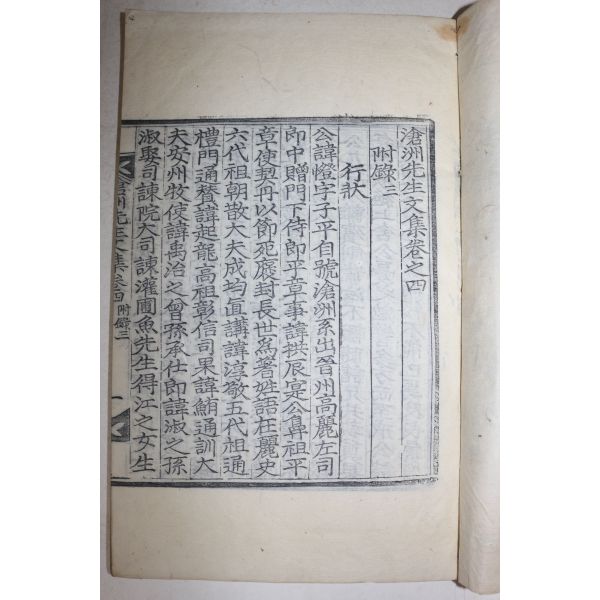 滄洲先生文集卷之四
附錄三
行狀
公諱憕字子平自號滄洲系出晉州高麗左司
郎中贈門下侍郎平章事諱拱辰寔公鼻祖平
章使契丹以節死廢封長世爲著姓語在麗史
六代祖朝散大夫成均直講諱淳敬五代祖通
禮門通贊諱起龍高祖彰信司果諱鮪通訓大
夫安州牧使諱禹治之曾孫承仕郎諱淑之孫
淑娶司諫院大司諫灌圃魚先生得江之女生
滄洲先生文集卷四 附錄三 一